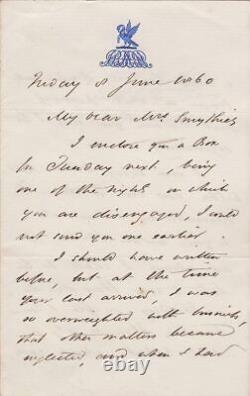 Friday 8 June 1860
My dear Mrs. Smythies
I enclose you a Box
for Tuesday next, being
one of the nights on which
you are disengaged, I could
not send you one earlier.
I should have written
before, but at the time
your card arrived, I was
so overweighted with business,
that other matters became
neglected, and when I had